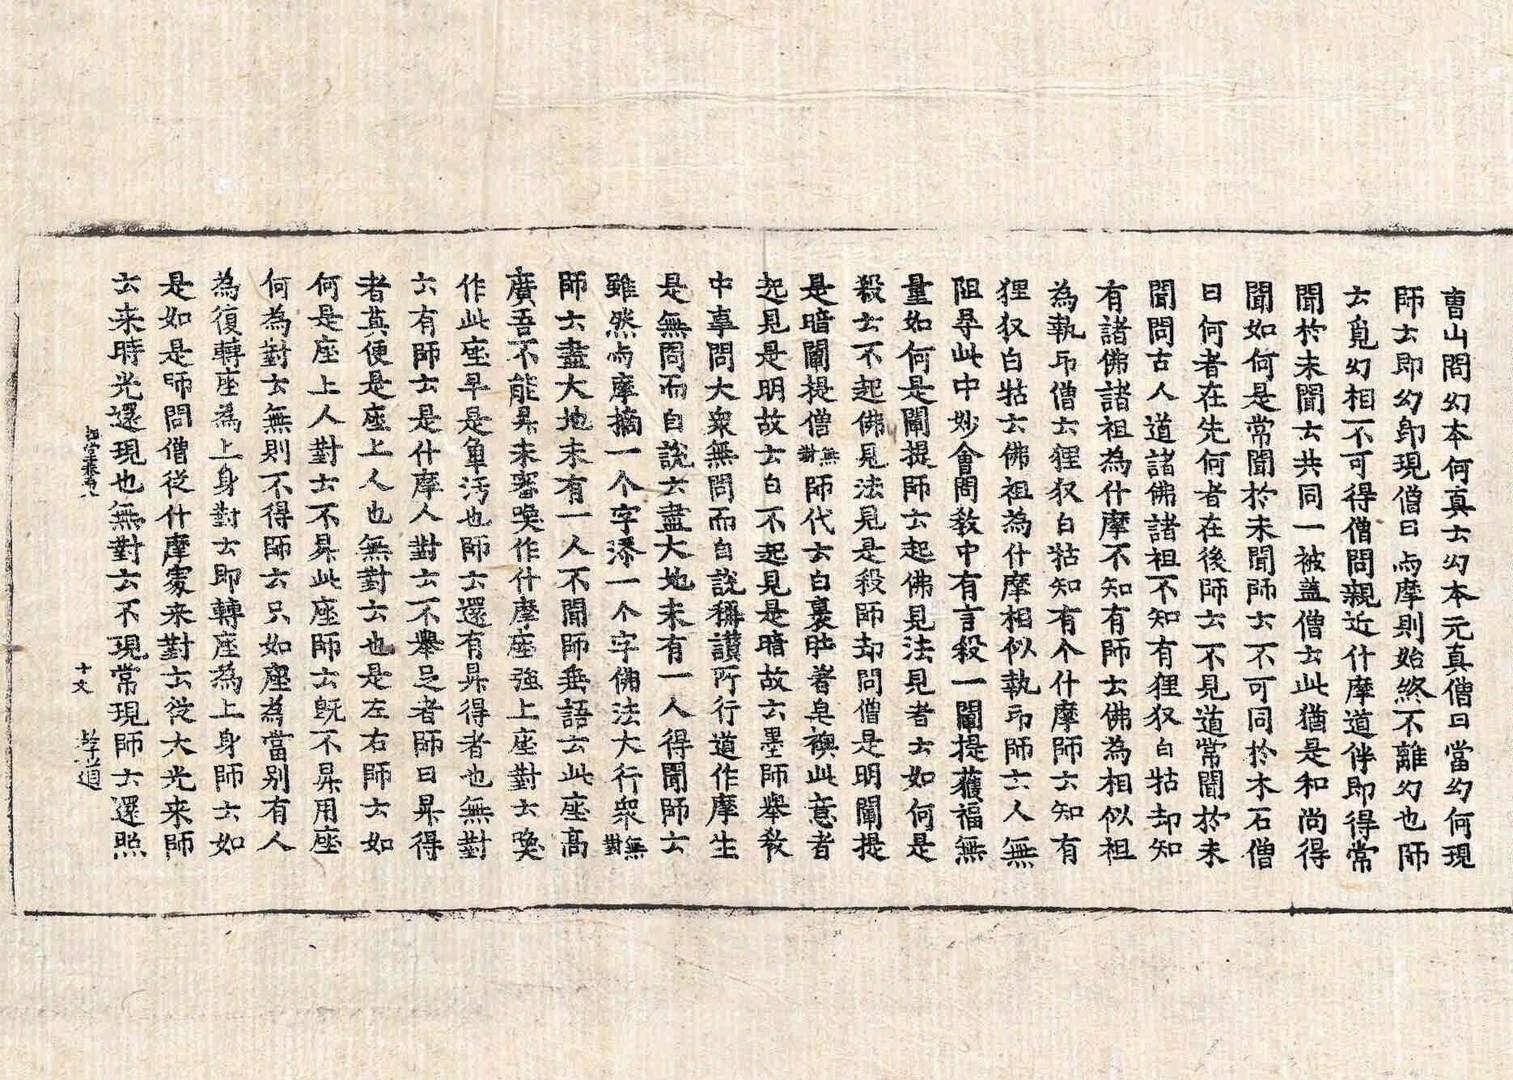 曹山問幻本何真士幻本元真僧曰當幻何現
師士即幻即現僧曰与摩則始終不離幻也師
士覓幻相不可得僧問親近什摩道伴即得常
聞於未聞士共同一被盖僧士此猶是和尚得
聞如何是常聞於未聞師士不可同於木石僧
曰何者在先何者在後師士不見道常聞於未
聞問古人道諸佛諸祖不知有狸奴白牯却知
有諸佛諸祖為什摩不知有師士佛為相似祖
為執印僧士狸奴白牯知有个什摩師士知有
狸奴白牯士佛祖為什摩相似執印師士人無
阻尋此中妙會問教中有言殺一闡提獲福無
量如何是闡提師士起佛見法見者士如何是
殺士不起佛見法見是殺師却問僧是明闡提
是暗闡提僧無對師代士白裹肚著皂襖此意者
起見是明故士白不起見是暗故士墨師舉教
中事問大衆無問而自說稱讚所行道作摩生
是無問而自說士盡大地未有一人得聞師士
雖然与摩摘一个字添一个字佛法大行衆無對
師士盡大地未有一人不聞師垂語士此座高
廣吾不能昇未審喚作什摩座強上座對士喚
作此座早是卑汚也師士還有昇得者也無對
士有師士是什摩人對士不舉足者師曰昇得
者莫便是座上人也無對士也是左右師士如
何是座上人對士不昇此座師士旣不昇用座
何為對士無則不得師士只如座為當別有人
為復轉座為上身對士即轉座為上身師士如
是如是師問僧從什摩處来對士從大光来師
士来時光還現也無對士不現常現師士還照
祖堂集卷八 十丈 孝道